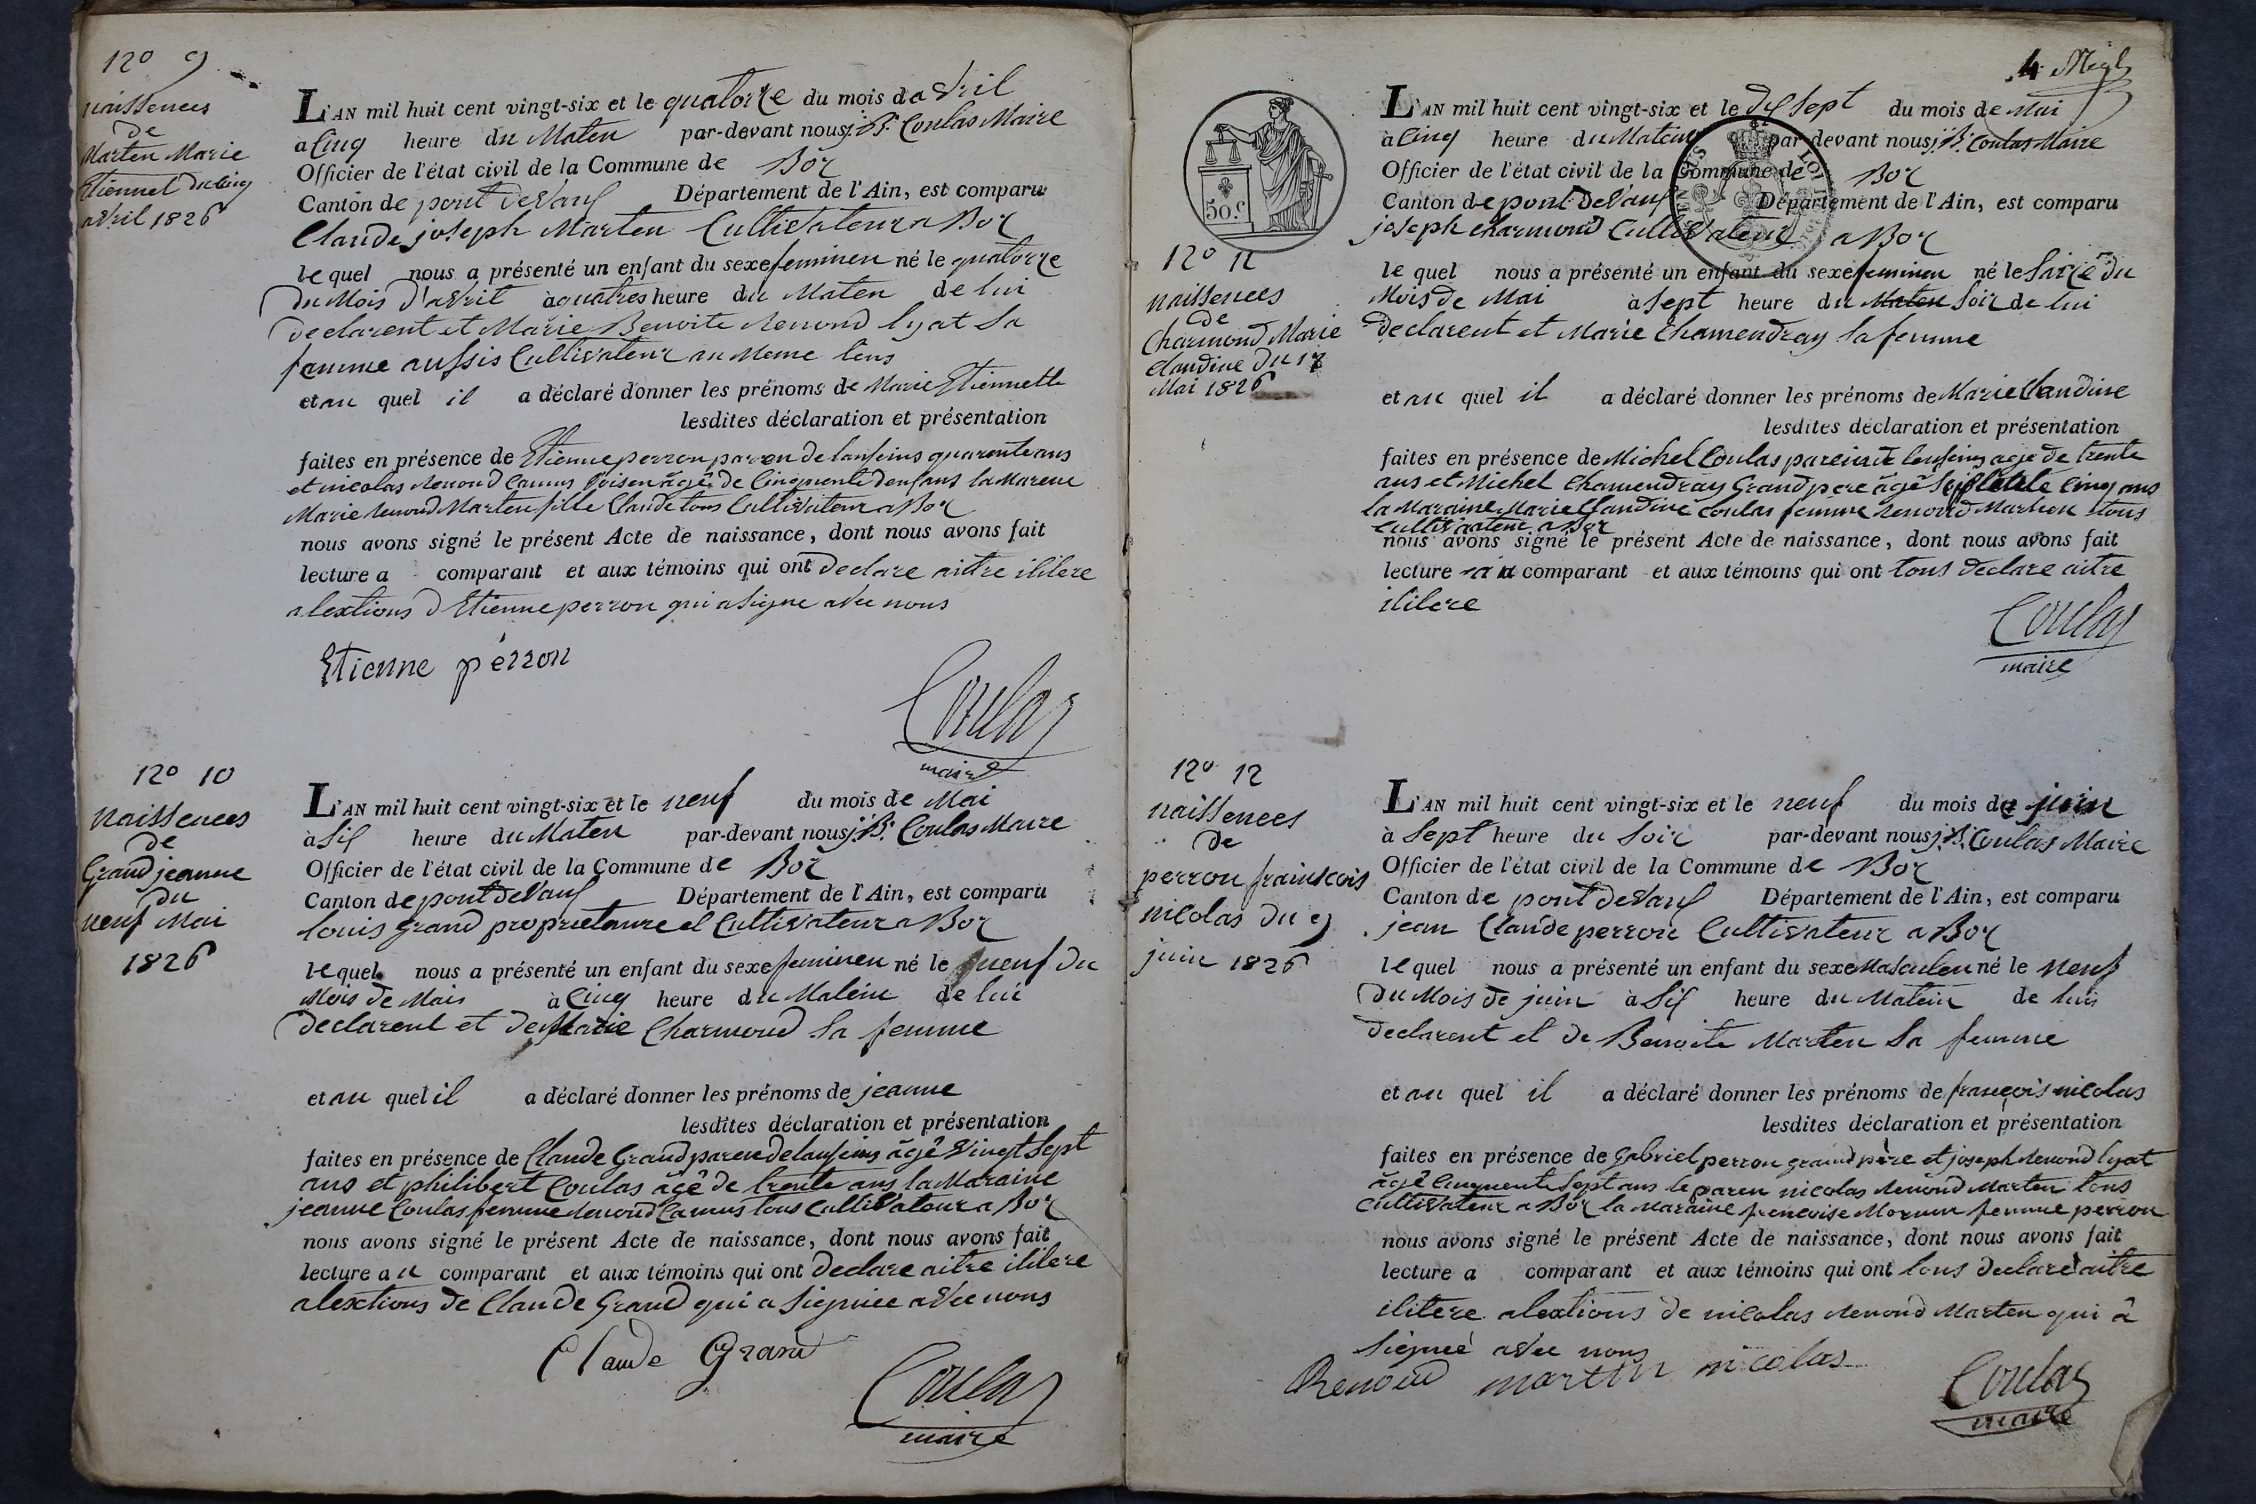 n° 9
naissences
de
Marten Marie
Etiennet du cinq
avril 1826
L'AN mil huit cent vingt-six et le quatorze du mois d avril
a cinq heure du Maten par-devant nous j. B. Coulas Maire
Officier de l'état civil de la Commune de Boz
Canton de pont de Vaux Département de l'Ain, est comparu
Claude joseph Marten Cultivateur a Boz
le quel nous a présenté un enfant du sexe feminen né le quatorze
du Mois d'avril à quatres heure du Maten de lui
declarent et Marie Benoite Renoud lyat Sa
femme aussis Cultivateur au Meme lieus
et au quel il a déclaré donner les prénoms de Marie Etiennette
lesdites déclaration et présentation
faites en présence de Etienne perron quarente ans
et nicolas Renoud Camus voisen âgé de Cinquente
Marie Renoud Marten fille Claude tous Cultivateur a Boz
nous avons signé le présent Acte de naissance, dont nous avons fait
lecture a comparant et aux témoins qui ont declare aitre ilitere
alextions d Etienne perron qui a signe avec nous
Etienne pérron
Coulas
maire
n° 10
naissences
de
Grand jeanne
du
neuf Mai
1826
L'AN mil huit cent vingt-six et le neuf du mois de Mai
à Six heure du Maten par-devant nous j. B. Coulas Maire
Officier de l'état civil de la Commune de Boz
Canton de pont de Vaux Département de l'Ain, est comparu
louis Grand proprietaure et Cultivateur a Boz
le quel nous a présenté un enfant du sexe feminen né le neuf du
Mois de Mais à Cinq heure du Matein de lui
declarent et de Marie Charmoud Sa femme
et au quel il a déclaré donner les prénoms de jeanne
lesdites déclaration et présentation
faites en présence de Claude Grand âgé Vingt Sept
ans et philibert Coulas âgé de trente ans la Maraine
jeanne Coulas femme Renoud Camus tous Cultivateur a Boz
nous avons signé le présent Acte de naissance, dont nous avons fait
lecture au comparant et aux témoins qui ont declare aitre ilitere
alextions de Claude Grand qui a Signiee avec nous
Claude Grand
Coulas
maire
4
50.c
n° 11
naissences
de
Charmoud Marie
claudine du 17
Mai 1826
L'AN mil huit cent vingt-six et le dix Sept du mois de Mai
à Cinq heure du Maten par-devant nous j. B. Coulas Maire
Officier de l'état civil de la Commune de Boz
Canton de pont de Vaux Département de l'Ain, est comparu
joseph Charmoud Cultivateur a Boz
le quel nous a présenté un enfant du sexe feminen né le Saize du
Mois de Mai à Sept heure du Maten Soir de lui
declarent et Marie Chamendray Sa femme
et au quel il a déclaré donner les prénoms de Marie Claudine
lesdites déclaration et présentation
faites en présence de Michel Coulas age de trente
ans et Michel Chamendray Grand père âgé cinq ans
la Maraine Marie Claudine Coulas femme Renoud Marten tous
Cultivateur a Boz
nous avons signé le présent Acte de naissance, dont nous avons fait
lecture au comparant et aux témoins qui ont tous declare aitre
ilitere
Coulas
maire
n° 12
naissences
de
perron frainscois
nicolas du 9
juin 1826
L'AN mil huit cent vingt-six et le neuf du mois de juin
à Sept heure du Soir par-devant nous j. B. Coulas Maire
Officier de l'état civil de la Commune de Boz
Canton de pont de Vaux Département de l'Ain, est comparu
jean Claude perron Cultivateur a Boz
le quel nous a présenté un enfant du sexe Masculen né le neuf
du Mois de juin à Six heure du Matein de luis
declarent et de Benoite Marten Sa femme
et au quel il a déclaré donner les prénoms de françois nicolas
lesdites déclaration et présentation
faites en présence de Gabriel perron grand père et joseph Renoud lyat
âgé Cinquente Sept ans le paren nicolas Renoud Marten tous
Cultivateur a Boz la Maraine frencoise Morem femme perron
nous avons signé le présent Acte de naissance, dont nous avons fait
lecture a comparant et aux témoins qui ont tous declare aitre
ilitere alextions de nicolas Renoud Marten qui â
Signeé avec nous
Renoud martin nicolas
Coulas
maire